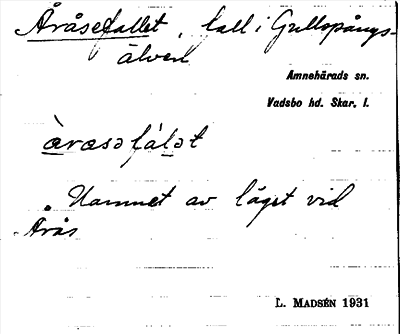 Åråsefallet, fall i Gullspångs-
älven
Amnehärads sn.
Vadsbo hd. Skar. l.
àrasə fál̯ət
Namnet av läget vid
Årås
L. MADSÉN 1931